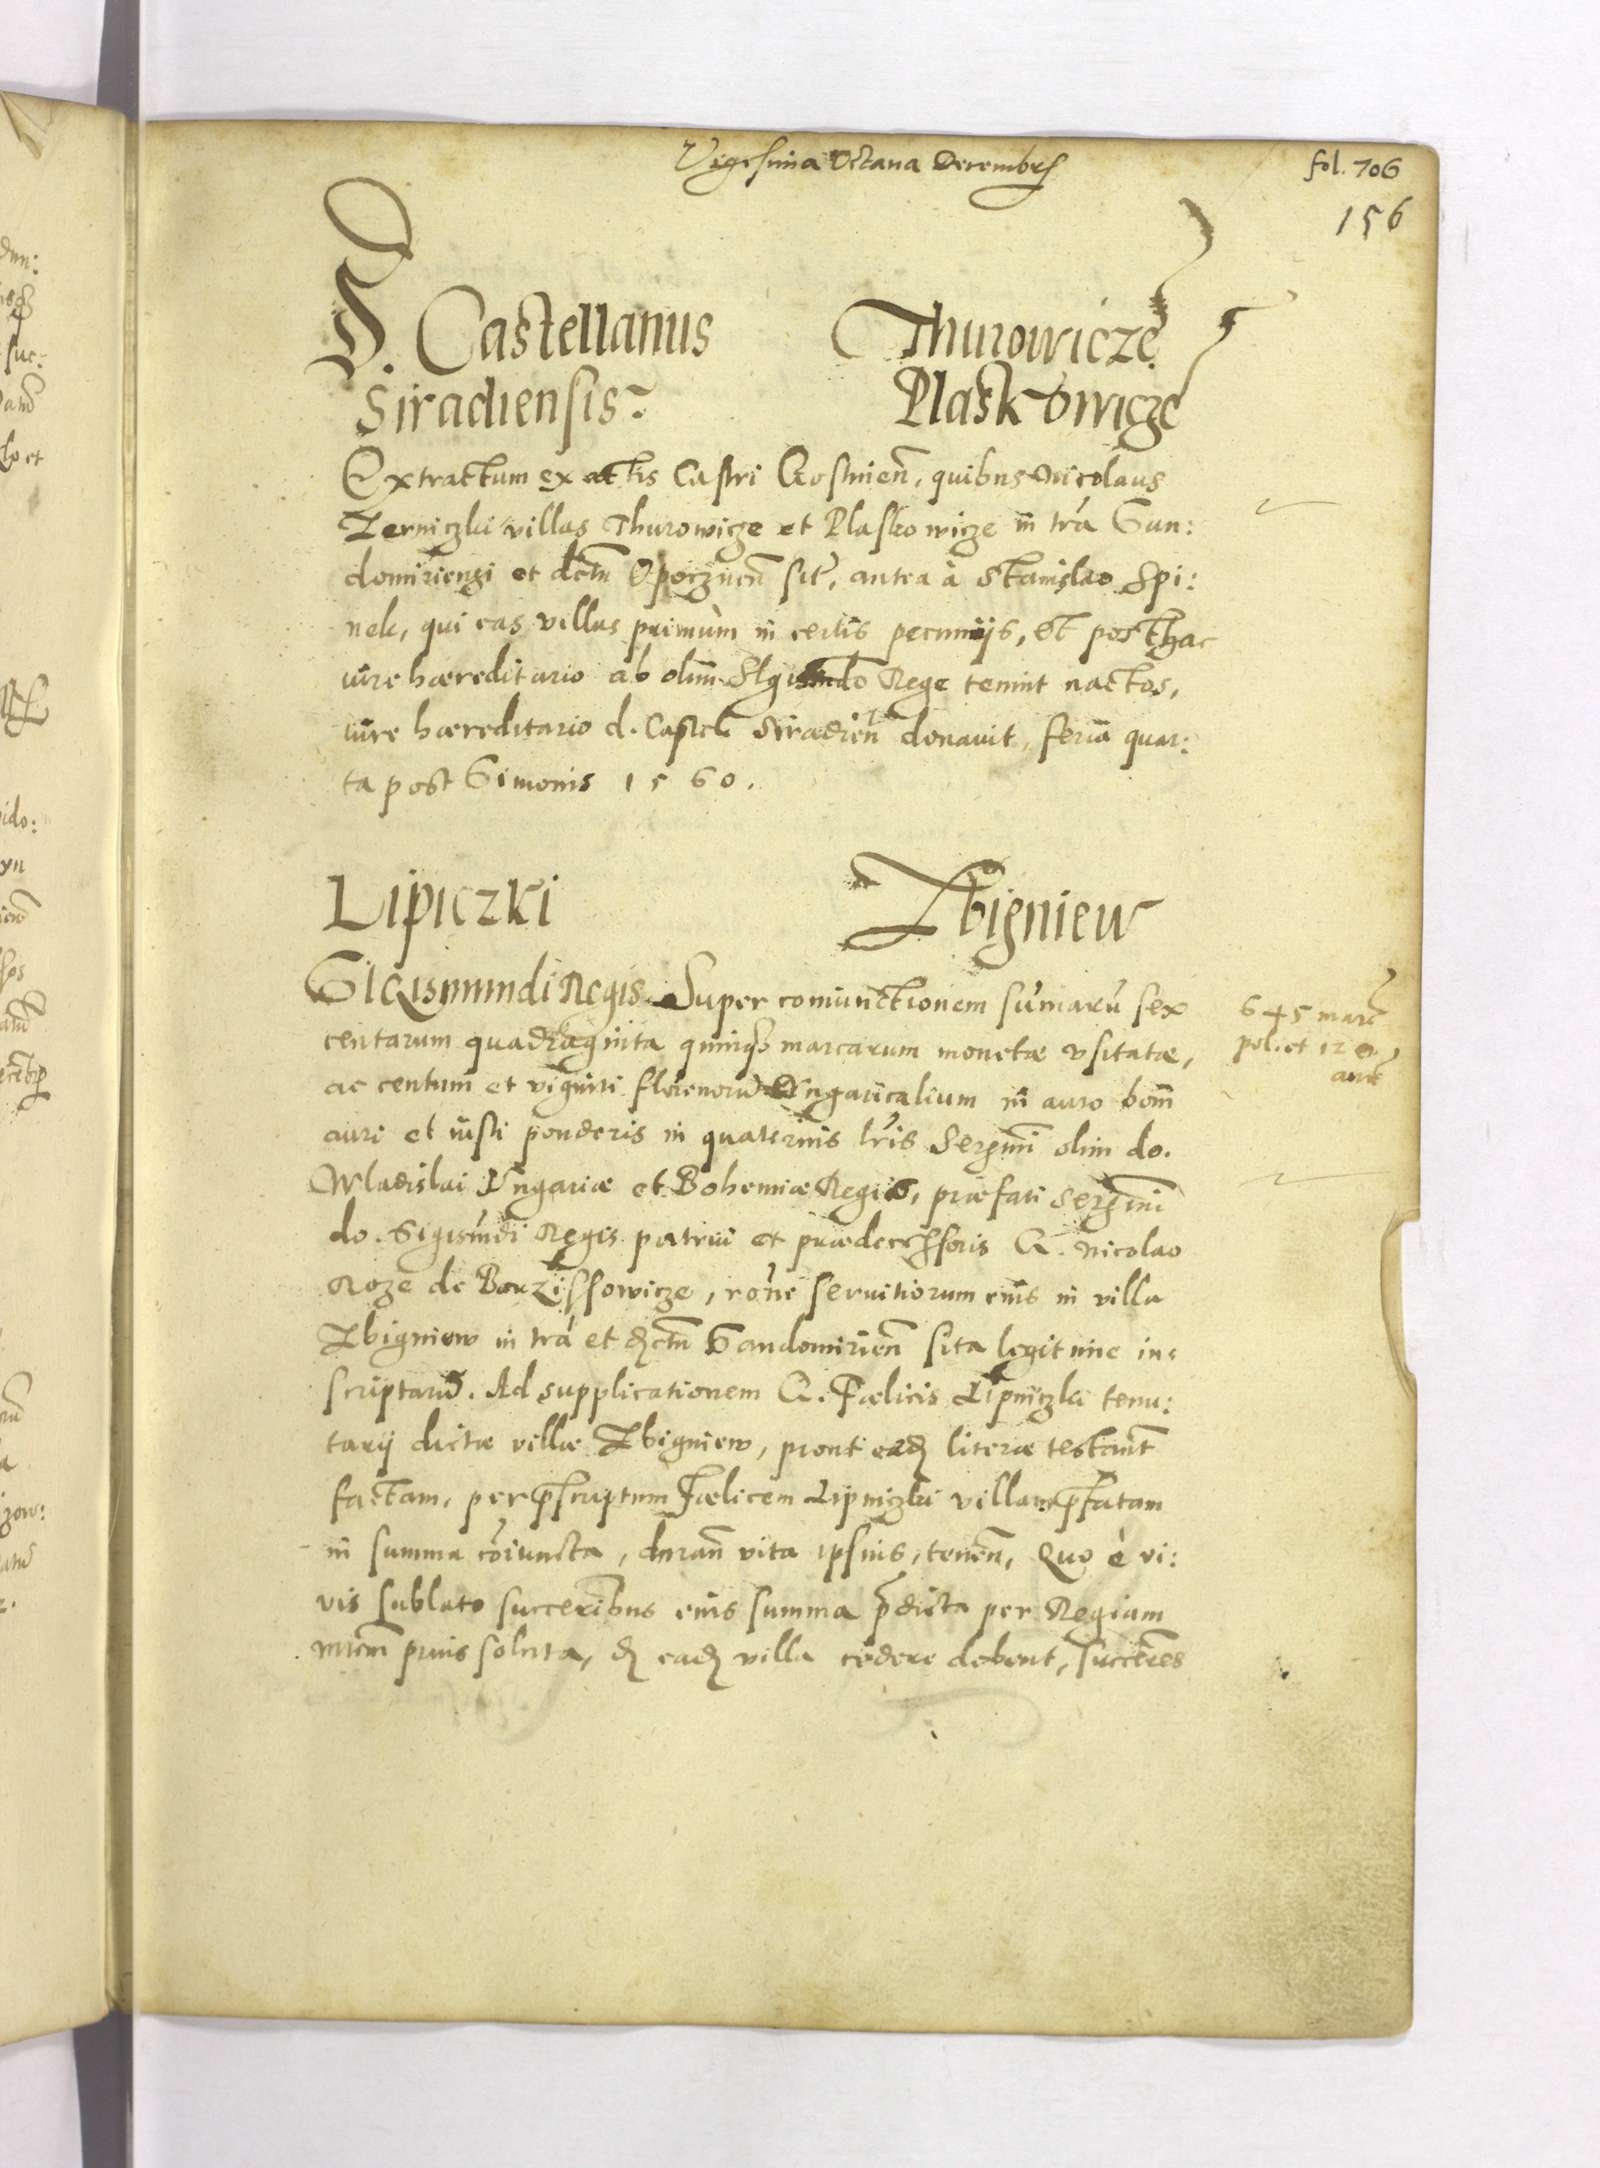 Vigesima Octaua Decembris
fol. 706
156
D. Castellanus Thurowicze
Siradiensis Plaskowicze
Extractum ex actis Castri Gostinen̄, quibus Nicolaus
Zerniczki villas Thurowicze et Plaskowicze in tr̄a San:
domiriensi et dctū Opocznen̄ sit̄, antea à Stanislao Spi:
nek, qui eas villas primùm in certis pecunijs, et posthac
iure hæreditario ab olim Sigismdo Rege tenuit nactos,
iure hæreditario d. Castel Siradien̄ donauit, feria quar:
ta post Simonis 1560.
Lipiczki Zbigniew
Sigismundi Regis. Super coniunctionem sūmarū sex
centarum quadraginta quinqз marcarum monetæ vsitatæ,
ac centum et viginti florenorū Vngaricalium in auro bonī
auri et iusti ponderis in quaternis lr̄is Sermī olim do.
Wladislai Vngariæ et Bohemiæ Regis, præfati Sermī
do. Sigism̄di Regis patrui et prædecessoris G. Nicolao
Roze de Borzissowicze, rōne seruitiorum eius in villa
Zbigniew in tr̄a et dctū Sandomirien̄ sita legitime in:
scriptarū. Ad supplicationem G. Fœlicis Lipniczki tenu:
tarij dictæ villæ Zbigniew, prout eædē literæ testant̄
factam, per p̄scriptum Fœlicem Lipniczki villam p̄fatam
in summa cōiuncta, duran̄ vita ipsius, tenen̄, Quo è vi:
vis sublato succeribus eius summa p̄dicta per Regiam
mtem prius soluta, de eadē villa cedere debent, succeres
645 marc
pol. et 120
aur